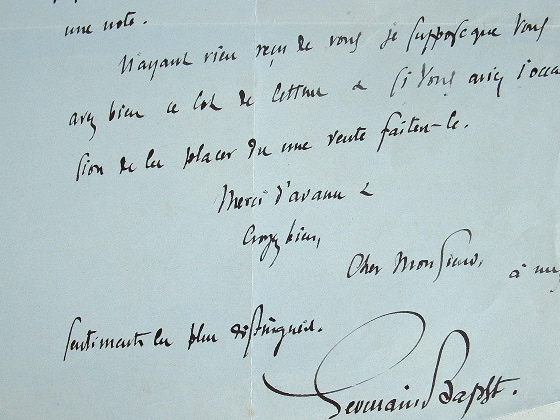 une note.
N'ayant rien reçu de vous je suppose que vous
avez bien ce lot de lettres & si vous aviez l'occa
sion de les placer du une vente faites-le.
Merci d'avance &
Croyez bien,
Cher Monsieur, à mes
sentiments les plus distingués.
Germain Bapst.